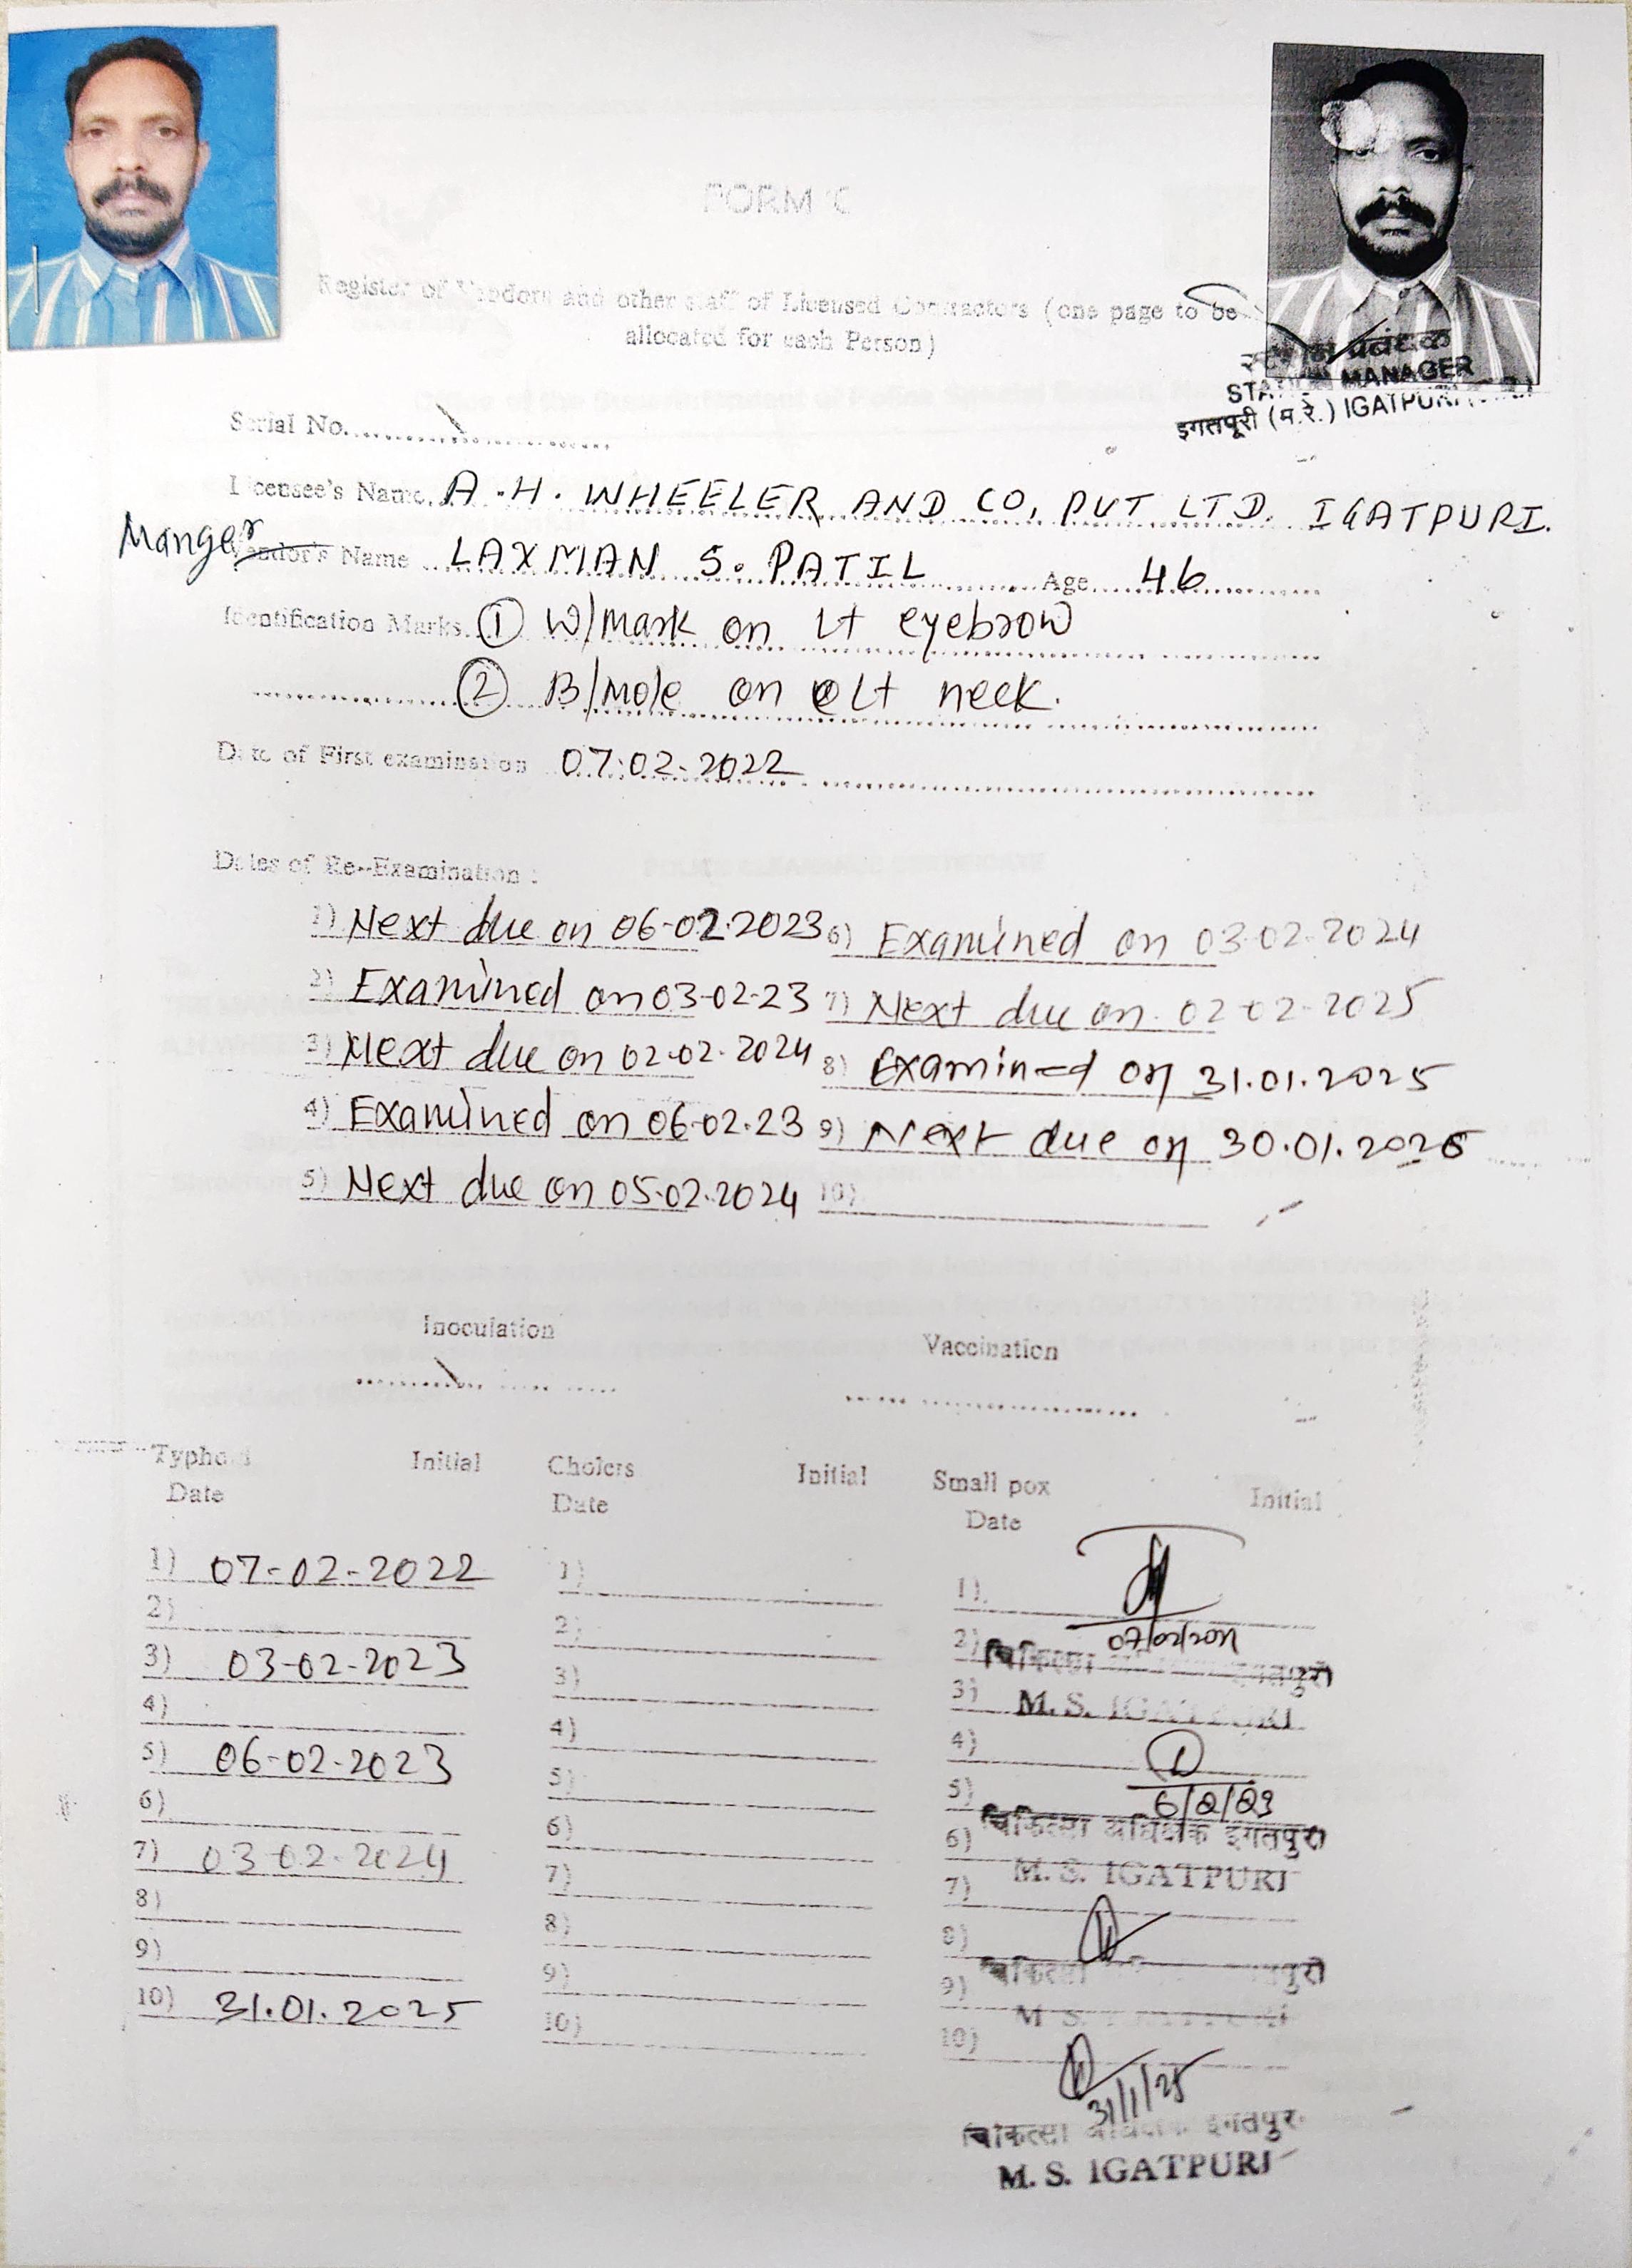 FORM 'C
Register of Vendors and other staff of Licensed Contractors (one page to be
allocated for each Person)
STATION MANAGER
इगतपूरी (म.रे.) IGATPURI
Serial No.
Licensee's Name. A.H. WHEELER AND CO, PVT LTD. IGATPURI.
Manger Vendor's Name LAXMAN S. PATIL Age 46
Identification Marks. ① W/Mark on Lt eyebrow
② B/Mole on Lt neck.
Date of First examination 07.02.2022
Dates of Re-Examination :
1) Next due on 06-02-2023 6) Examined on 03-02-2024
2) Examined on 03-02-23 7) Next due on 02-02-2025
3) Next due on 02-02-2024 8) Examined on 31.01.2025
4) Examined on 06-02-23 9) Next due on 30.01.2026
5) Next due on 05-02-2024 10)
Inoculation Vaccination
Typhoid Initial Cholers Initial Small pox Initial
Date Date Date
1) 07-02-2022 1) 1)
2) 2) 2)
3) 03-02-2023 3) 3)
4) 4) 4)
5) 06-02-2023 5) 5)
6) 6) 6)
7) 03-02-2024 7) 7)
8) 8) 8)
9) 9) 9)
10) 31.01.2025 10) 10)
चिकित्सा इगतपुरी
M. S. IGATPURI
6/2/23
चिकित्सा अधिक्षक इगतपुरी
M. S. IGATPURI
चिकित्सा
31/1/25
चिकित्सा
M. S. IGATPURI